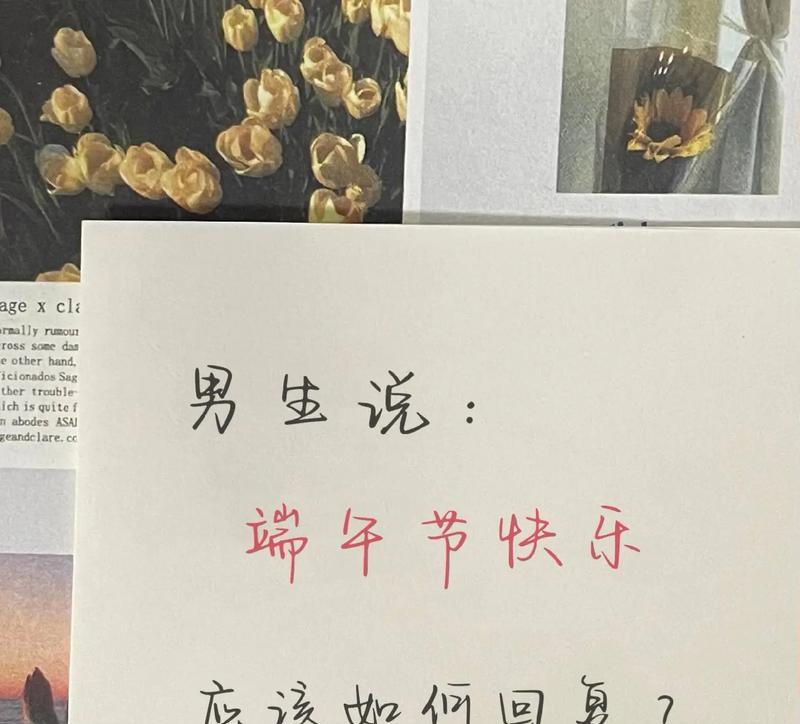 age x cla
ormally rumour
ross some das
e other hand,
icionados Sag
ther trouble-
ich is quite f
n abodes ASAI
geandclare.co
男生说：
端午节快乐
应该如何回复？